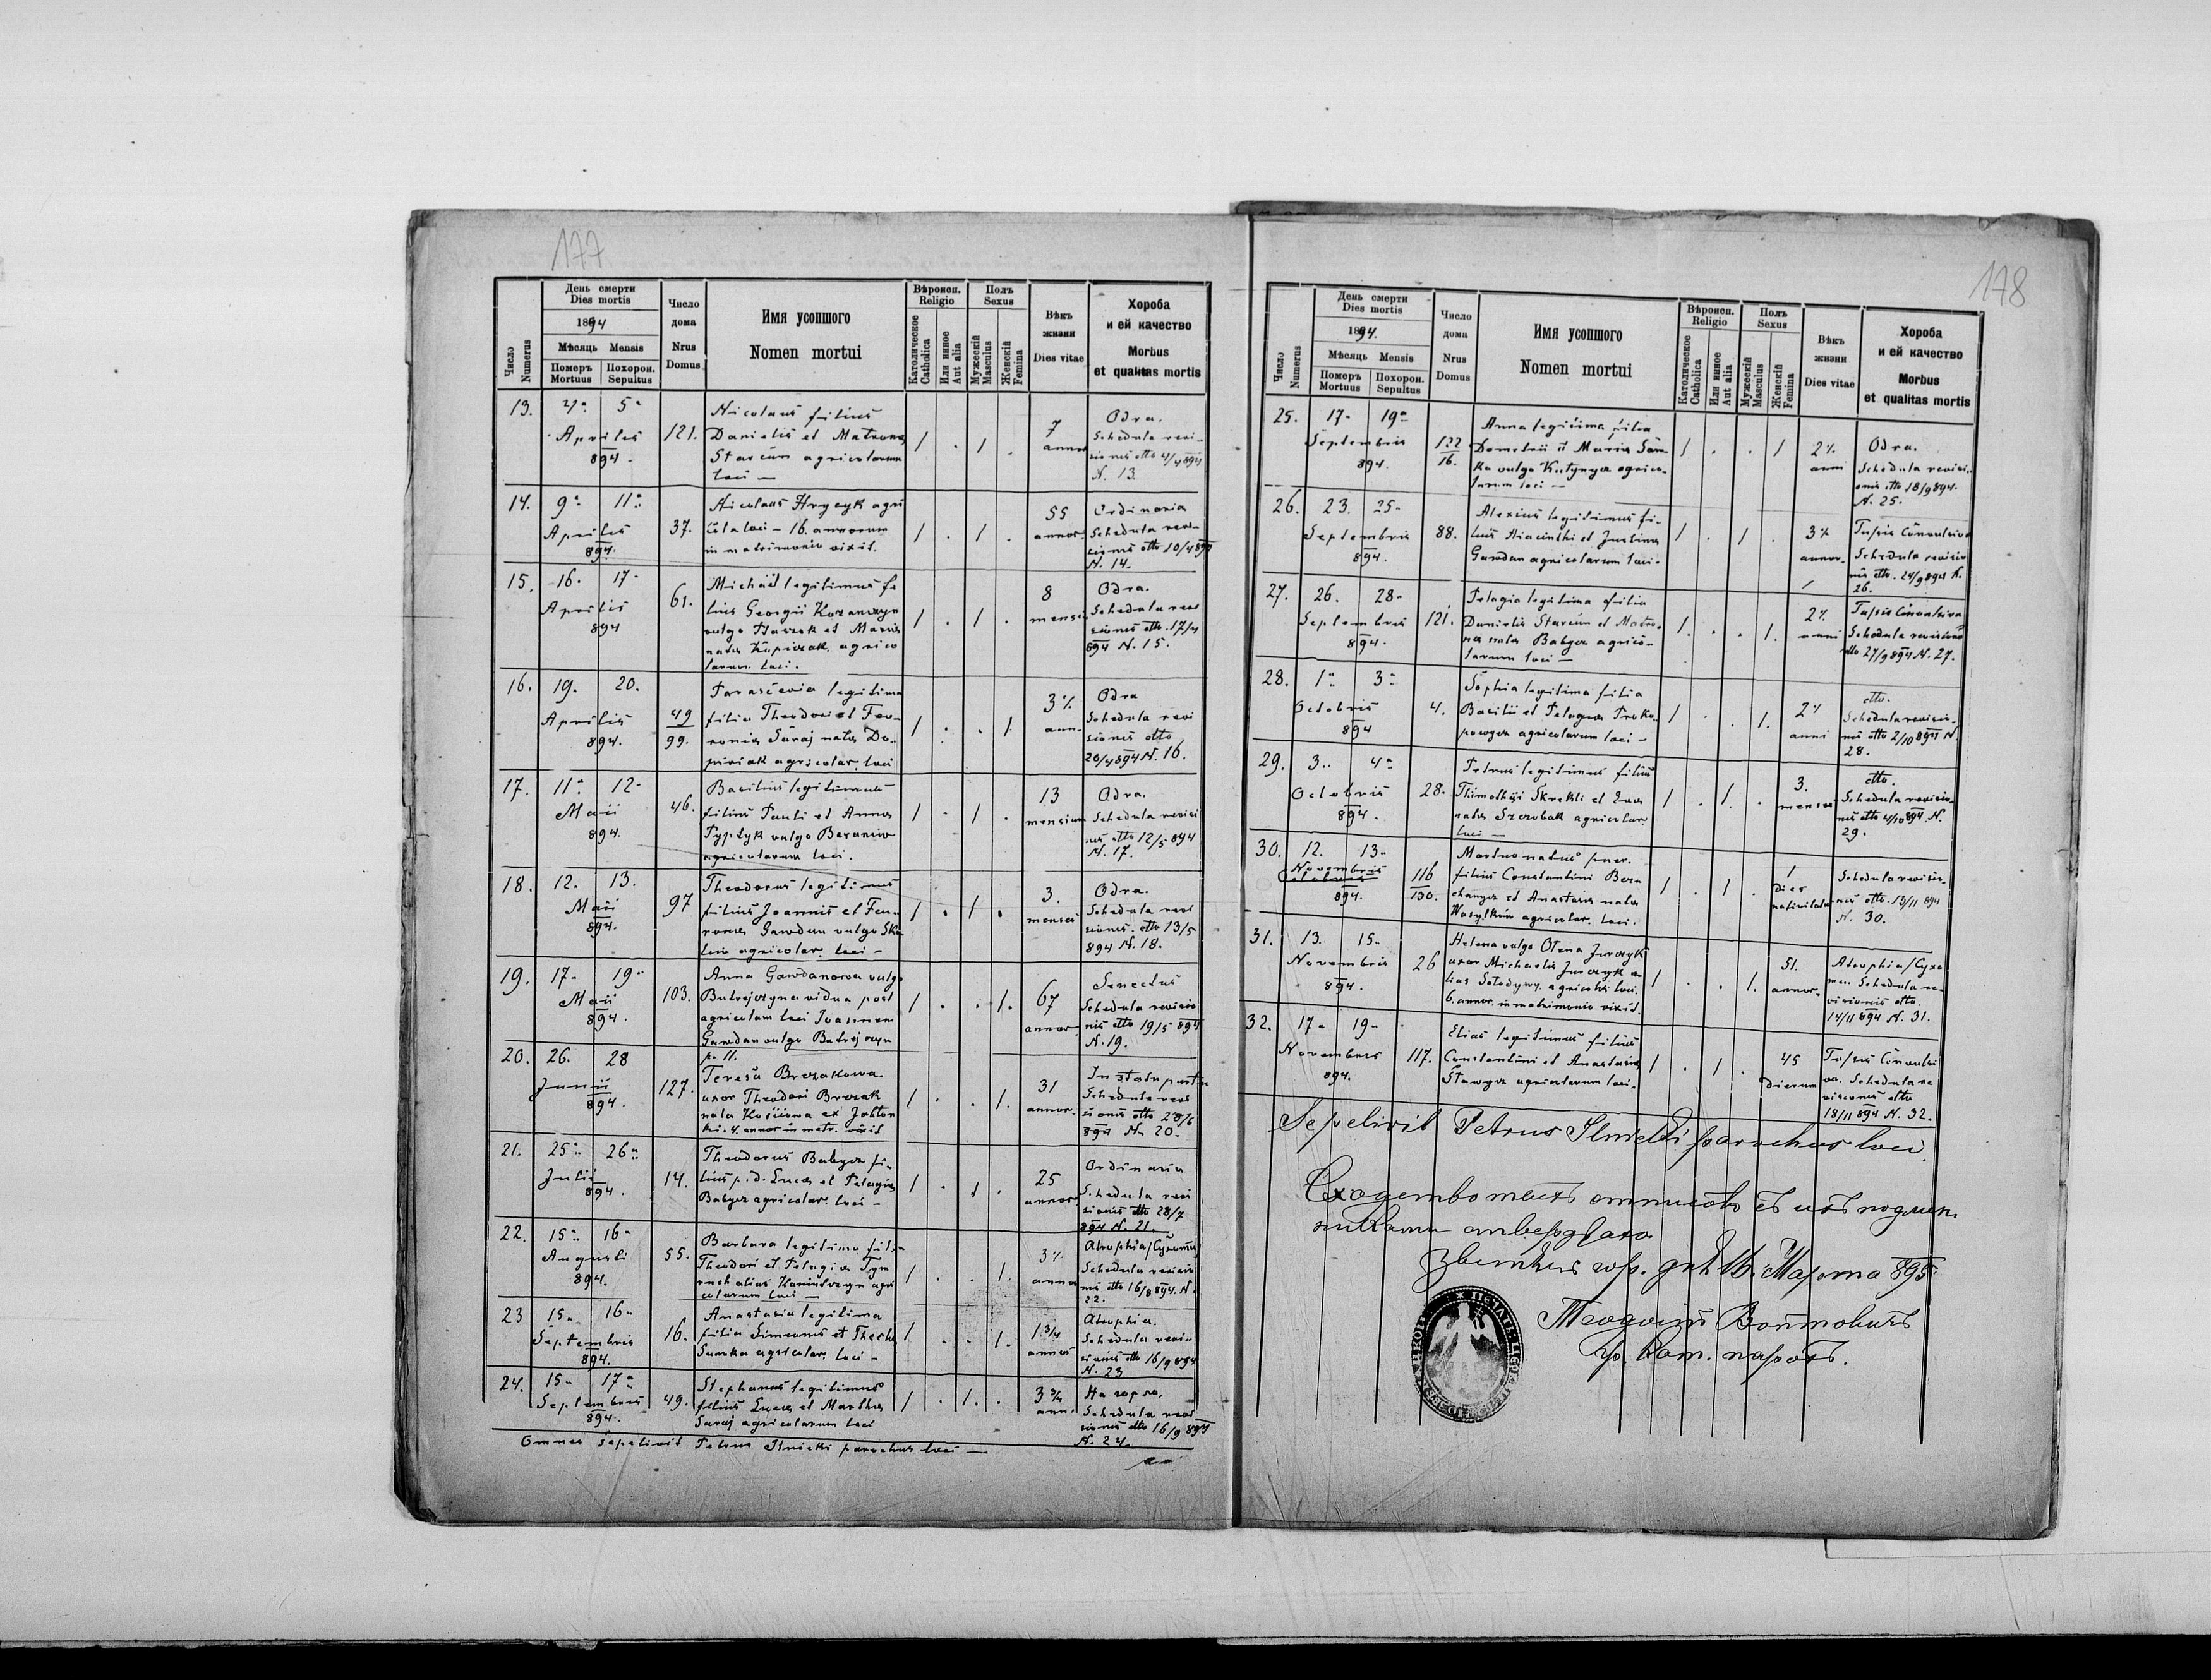 177
Число
Numerus
День смерти
Dies mortis
1894
Мѣсяць Mensis
Померъ Mortuus
Похорон. Sepultus
Число дома
Nrus Domus
Имя усопшого
Nomen mortui
Вѣроисп.
Religio
Католическое Catholica
Или инное Aut alia
Полъ
Sexus
Мужескій Masculus
Женскій Femina
Вѣкъ жизни
Dies vitae
Хороба
и ей качество
Morbus
et qualitas mortis
13. 4. 5.
Aprilis
894.
121.
Nicolaus filius
Danielis et Matrona
Starciw agricolarum
loci —
1 . 1 .
7
annor
Odra.
Schedula revi-
sionis dtto 4/4 894
N. 13.
14. 9. 11.
Aprilis
894.
37.
Nicolaus Hrycyk agri
cola loci – 16. annorum
in matrimonio vixit.
1 . 1 .
55
annor.
Ordinaria
Schedula revi-
sionis dtto 10/4 894
N. 14.
15. 16. 17.
Aprilis
894
61.
Michael legitimus fi
lius Georgii
vulgo et Maria
nata agrico
larum loci.
1 . 1 .
8
mensi
Odra.
Schedula revi
sionis dtto. 17/4
894 N. 15.
16. 19. 20.
Aprilis
894.
49
99.
Parascevia legitima
filia Theodori et Fev-
ronia Saraj nata Do-
agricolar. loci
1 . . 1
3 ½
ann.
Odra
Schedula revi
sionis dtto
20/4 894 N. 16.
17. 11. 12.
Maii
894.
46.
Basilius legitimus
filius Pauli et Anna
Pyptyk vulgo
agricolarum loci.
1 . 1 .
13
mensium
Odra.
Schedula revisi
nis dtto 12/5 894
N. 17.
18. 12. 13.
Maii
894.
97
Theodorus legitimus
filius Joannis et Fev-
ronia Gawdan vulgo Ska
agricolar. loci –
1 . 1 .
3.
menses
Odra.
Schedula revi
sionis. dtto 13/5
894 N. 18.
19. 17. 19.
Maii
894.
103.
Anna Gawdanowa vulgo
vidua post
agricolam loci Joannem
Gawdan vulgo
1 . . 1.
67
annor
Senectus
Schedula revisio
nis dtto 19/5 894
N. 19.
20. 26. 28
Junii
894.
127.
p. 11.
Teresa Brozakowa.
uxor Theodori Brozak
nata ex Jablon
ki. 4. annor in matr. vixit
1 . . 1.
31
annor.
In statu partu
Schedula revi
sionis dtto 28/6
894 N. 20.
21. 25. 26.
Julii
894.
14.
Theodorus Babycz fi-
lius p. d. Luca et Pelagia
Babycz agricolar. loci –
1 . 1 .
25
annor
Ordinaria
Schedula revi
sionis dtto 28/7
894 N. 21.
22. 15. 16.
Augusti
894.
55.
Barbara legitima filia
Theodori et Pelagia Tym
alias agri
colarum loci –
1 . . 1.
3 ½
annor
Atrophia/Сухоты/
Schedula revisio
nis dtto 16/8 894. N.
22.
23 15. 16.
Septembris
894.
16.
Anastasia legitima
filia Simeonis et Thecla
Samka agricolar. loci –
1. . . 1.
1 3/4
annor
Atrophia.
Schedula revi-
sionis dtto 16/9 894
N. 23
24. 15. 17.
Septembris
894.
49.
Stephanus legitimus
filius Luca et Martha
Saraj agricolarum loci
1 . 1. .
3 ¾
ann.
На горло.
Schedula revi
sionis dtto 16/9 894
N. 24.
Omnes sepelivit Petrus Ilnicki parochus loci —
178
Число
Numerus
День смерти
Dies mortis
1894.
Мѣсяць Mensis
Померъ Mortuus
Похорон. Sepultus
Число дома
Nrus Domus
Имя усопшого
Nomen mortui
Вѣроисп.
Religio
Католическое Catholica
Или инное Aut alia
Полъ
Sexus
Мужескій Masculus
Женскій Femina
Вѣкъ жизни
Dies vitae
Хороба
и ей качество
Morbus
et qualitas mortis
25. 17. 19.
Septembris
894.
122
16.
Anna legitima filia
Demetrii et Maria Sam
ka vulgo agrico-
larum loci —
1 . . 1
2 ½
anni
Odra.
Schedula revisi-
onis dtto 18/9 894.
N. 25.
26. 23. 25.
Septembris
894.
88.
Alexius legitimus fi-
lius Hiacinthi et Justina
Gawdan agricolarum loci.
1 . 1 .
3 ½
annor.
Tussis Convulsiva
Schedula revisio
nis dtto. 24/9 894 N.
26.
27. 26. 28.
Septembris
894.
121.
Pelagia legitima filia
Danielis Starciw et Matro-
na nata Babycz agrico-
larum loci —
1. . . 1.
2 ½
anni
Tussis Convulsiva
Schedula revisionis
dtto 27/9 894 N. 27.
28. 1. 3.
Octobris
894
4.
Sophia legitima filia
Basilii et Pelagia Proko-
powycz agricolarum loci –
1 . . 1.
2 ½
anni
dtto.
Schedula revisio-
nis dtto 2/10 894 N.
28.
29. 3. 4.
Octobris
894.
28.
Petrus legitimus filius
Thimothei Skrekli et Eva
nata Szczerbak agricolar.
loci —
1 . 1. .
3.
menses
dtto.
Schedula revisio-
nis dtto 4/10 894. N.
29.
30. 12. 13.
Novembris
Octobris
894.
116
130.
Mortuo natus puer.
filius Constantini Bere
et Anastasia nata
Wasylkiw agricolar. loci.
1 . 1 .
1
dies
nativitatis
Schedula revisio-
nis dtto. 13/11 894
N. 30.
31. 13. 15.
Novembris
894.
26
Helena vulgo Olena Jurczyk
uxor Michaelis Jurczyk a-
lias agricola loci.
6. annor. in matrimonio vixit.
1 . . 1.
51.
annor.
Atrophia/Сухо
Schedula re-
visionis dtto.
14/11 894 N. 31.
32. 17. 19.
Novembris
894.
117.
Elias legitimus filius
Constantini et Anastasia
Stawycz agricolarum loci.
1 . 1 .
45
dierum
Tussis Convulsi
va. Schedula re
visionis dtto
18/11 894 N. 32.
Sepelivit Petrus Ilnicki parochus loci.
Сходство тыхъ отписовъ съ ихъ подлин
никами отверджаю
дня 16. Марта 895
Теодозій Войтовичъ
гр. кат. парохъ.